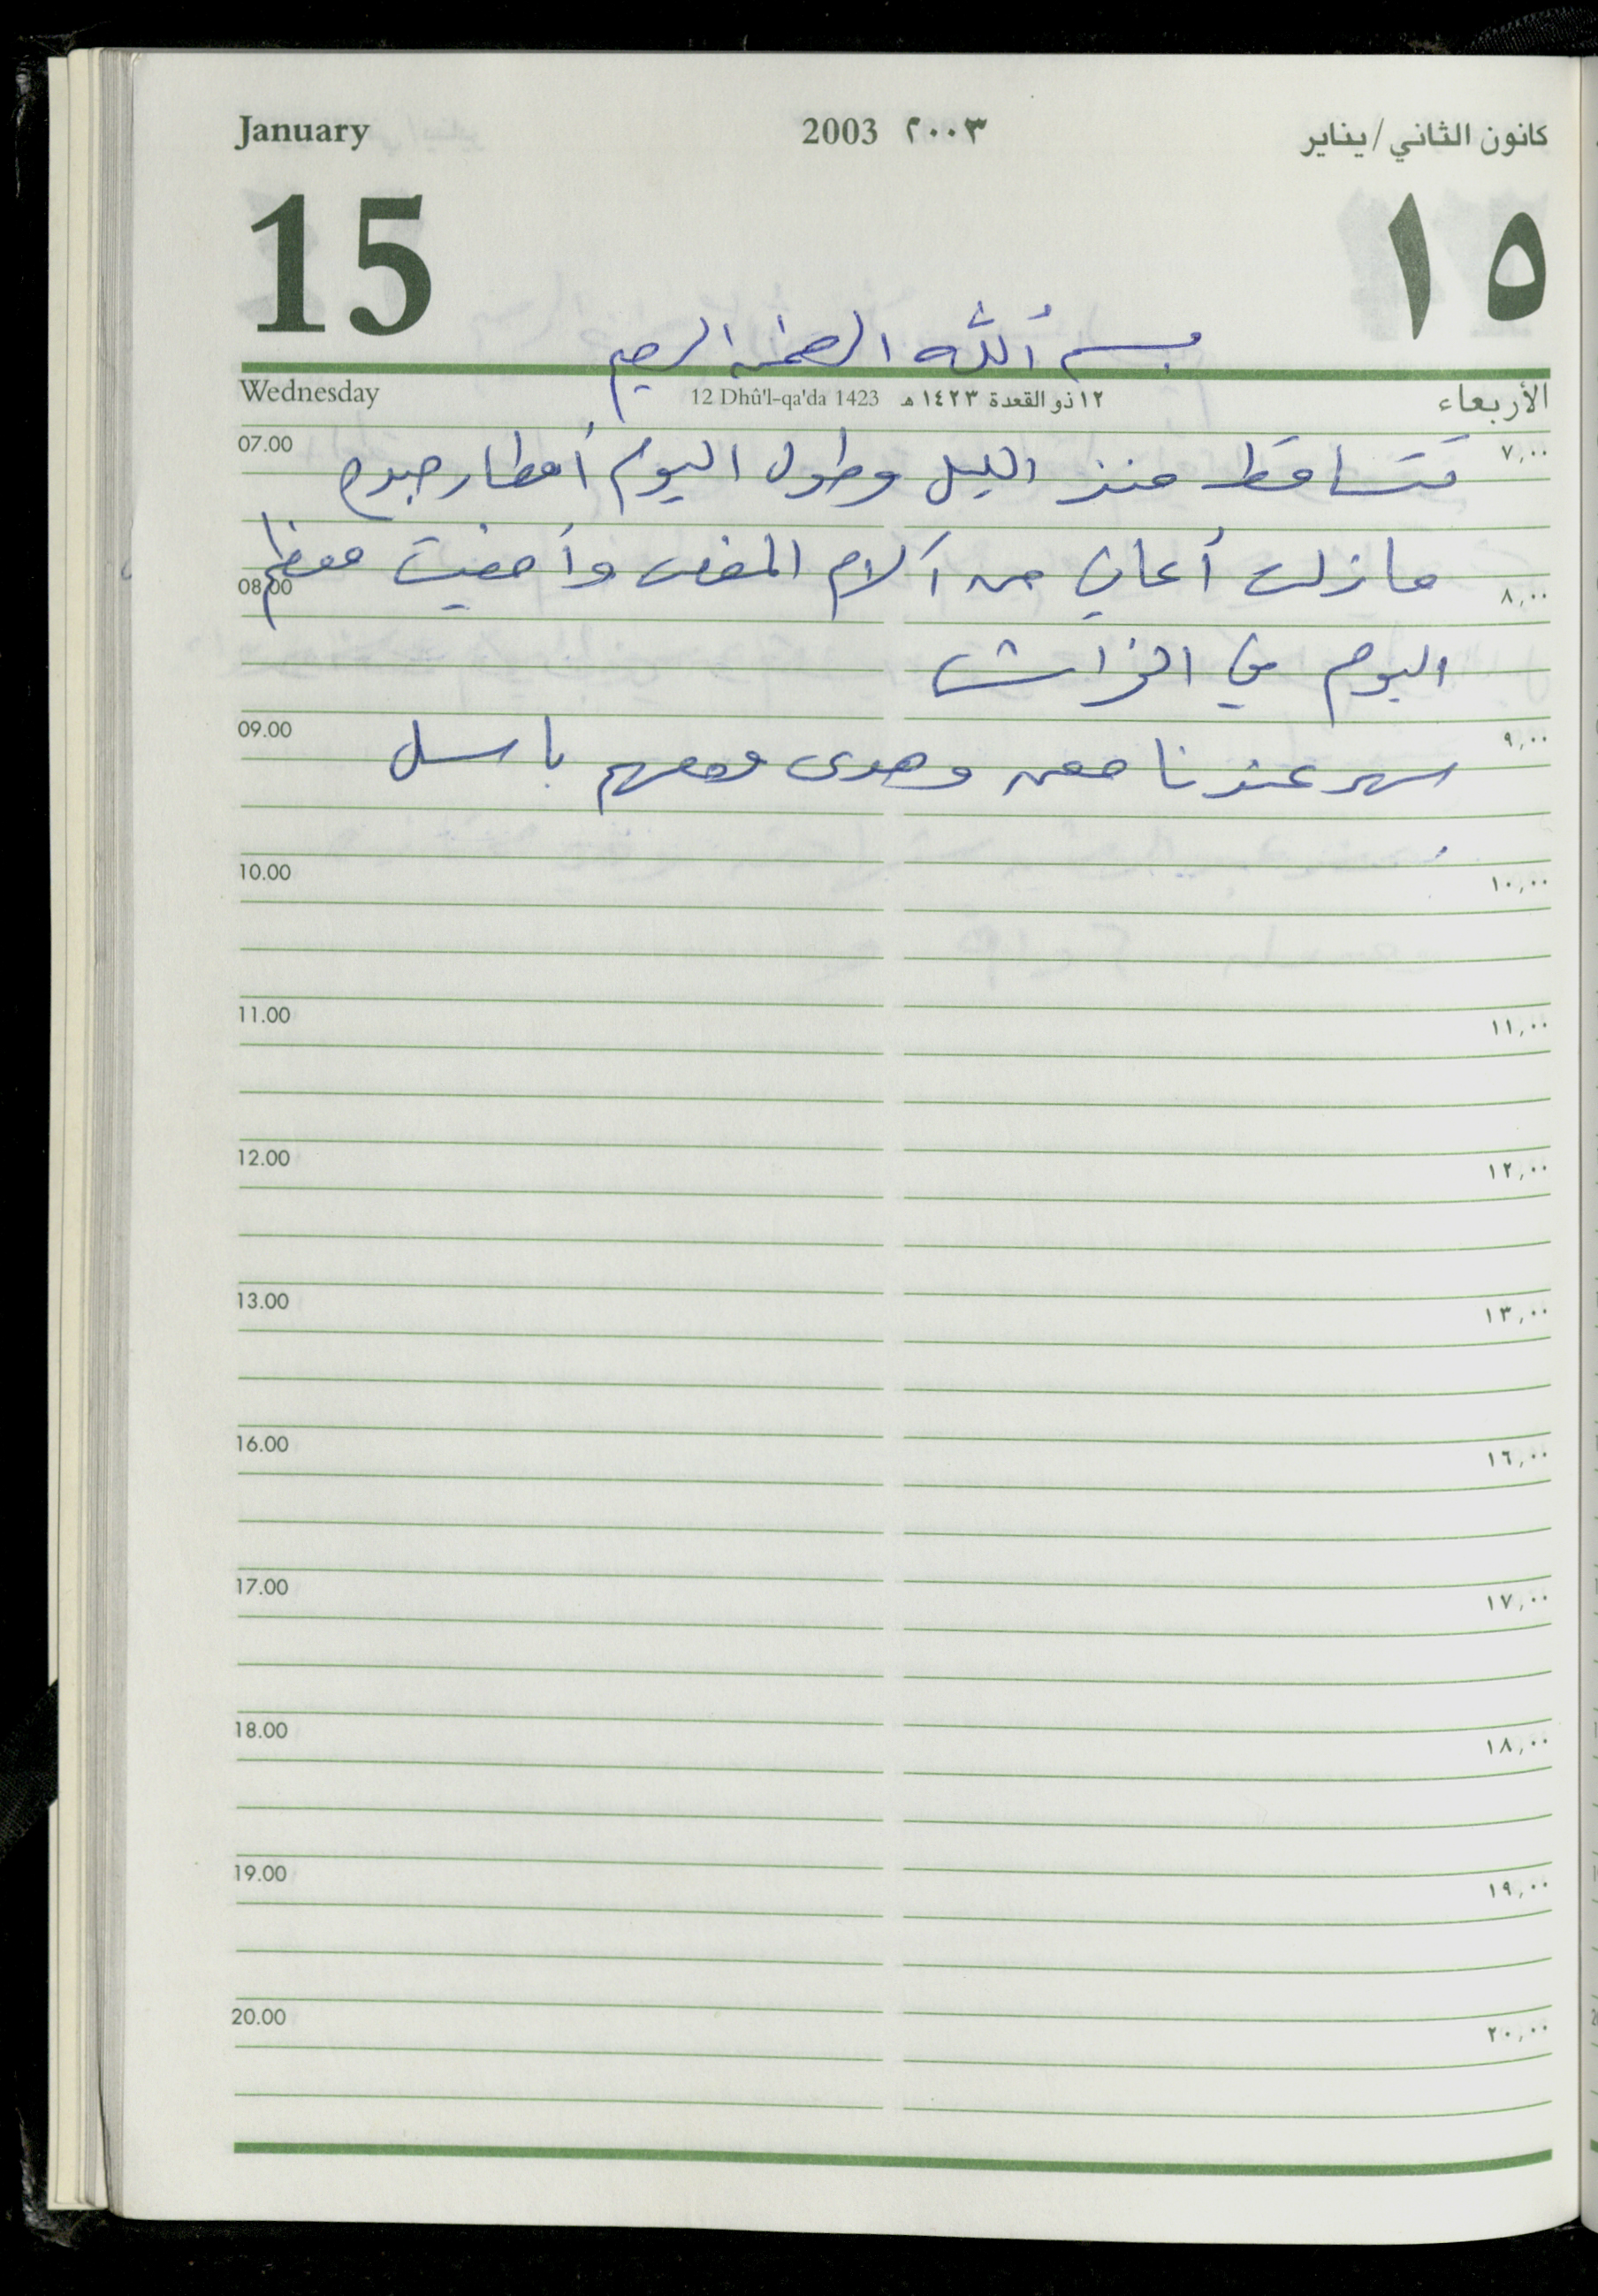 January 2003 ٢٠٠٣ كانون الثاني/يناير
15 ١٥
بسم الله الرحمن الرحيم
Wednesday 12 Dhû'l-qa'da 1423 ١٢ ذو القعدة ١٤٢٣ هـ الأربعاء
07.00 ٧,٠٠
تتساقط منذ الليل وطول اليوم أمطار جيدة
مازلت أعاني من آلام المغص وأمضيت معظم
08.00 ٨,٠٠
اليوم في الفراش
09.00 ٩,٠٠
سهر عندنا معن وهدى ومعهم باسل
10.00 ١٠,٠٠
11.00 ١١,٠٠
12.00 ١٢,٠٠
13.00 ١٣,٠٠
16.00 ١٦,٠٠
17.00 ١٧,٠٠
18.00 ١٨,٠٠
19.00 ١٩,٠٠
20.00 ٢٠,٠٠